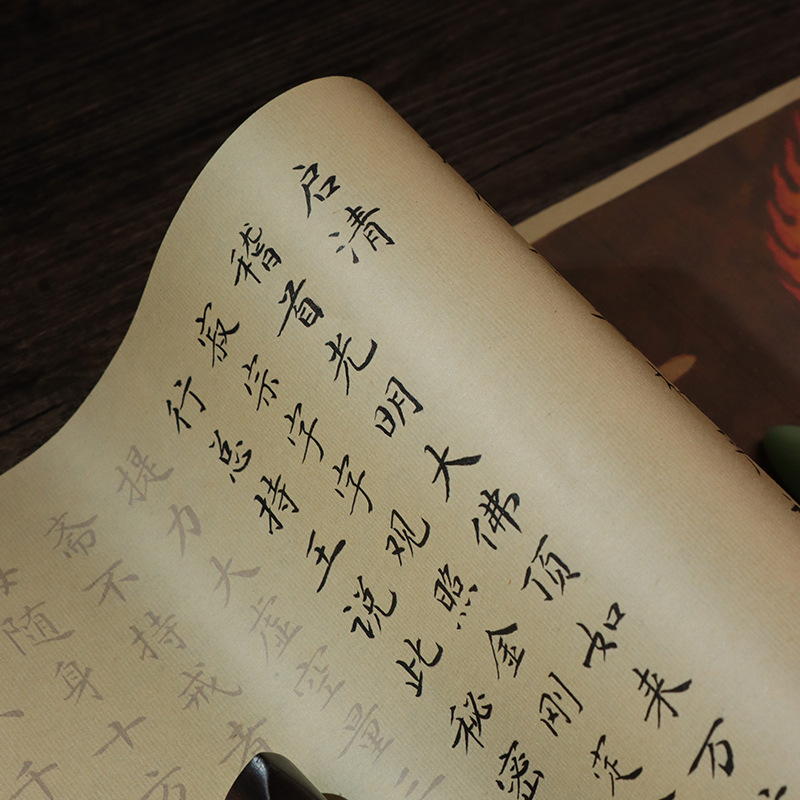 启清
稽首光明大佛顶如来万
寂宗字字观照金刚定
行总持王说此秘密
提力大虚空量三
斋不持戒者
随身十万
千